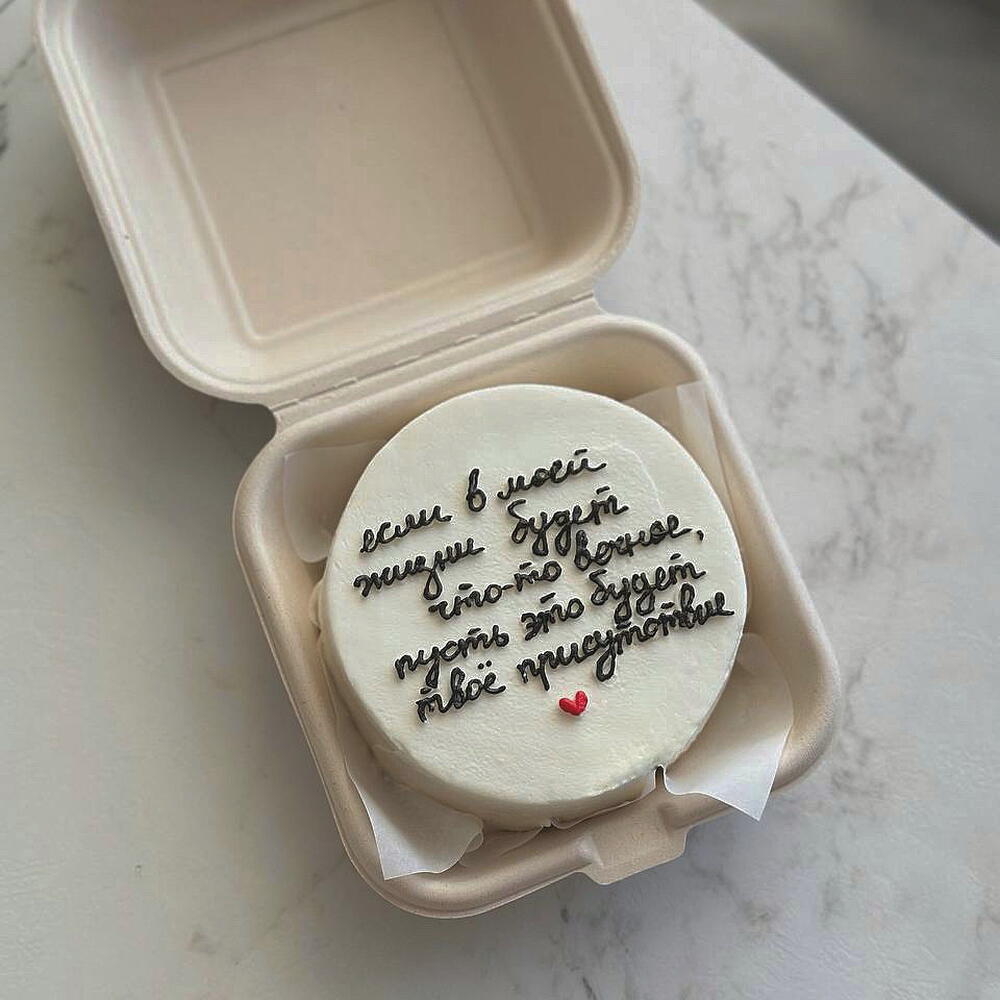 если в моей
жизни будет
что-то вечное,
пусть это будет
твоё присутствие